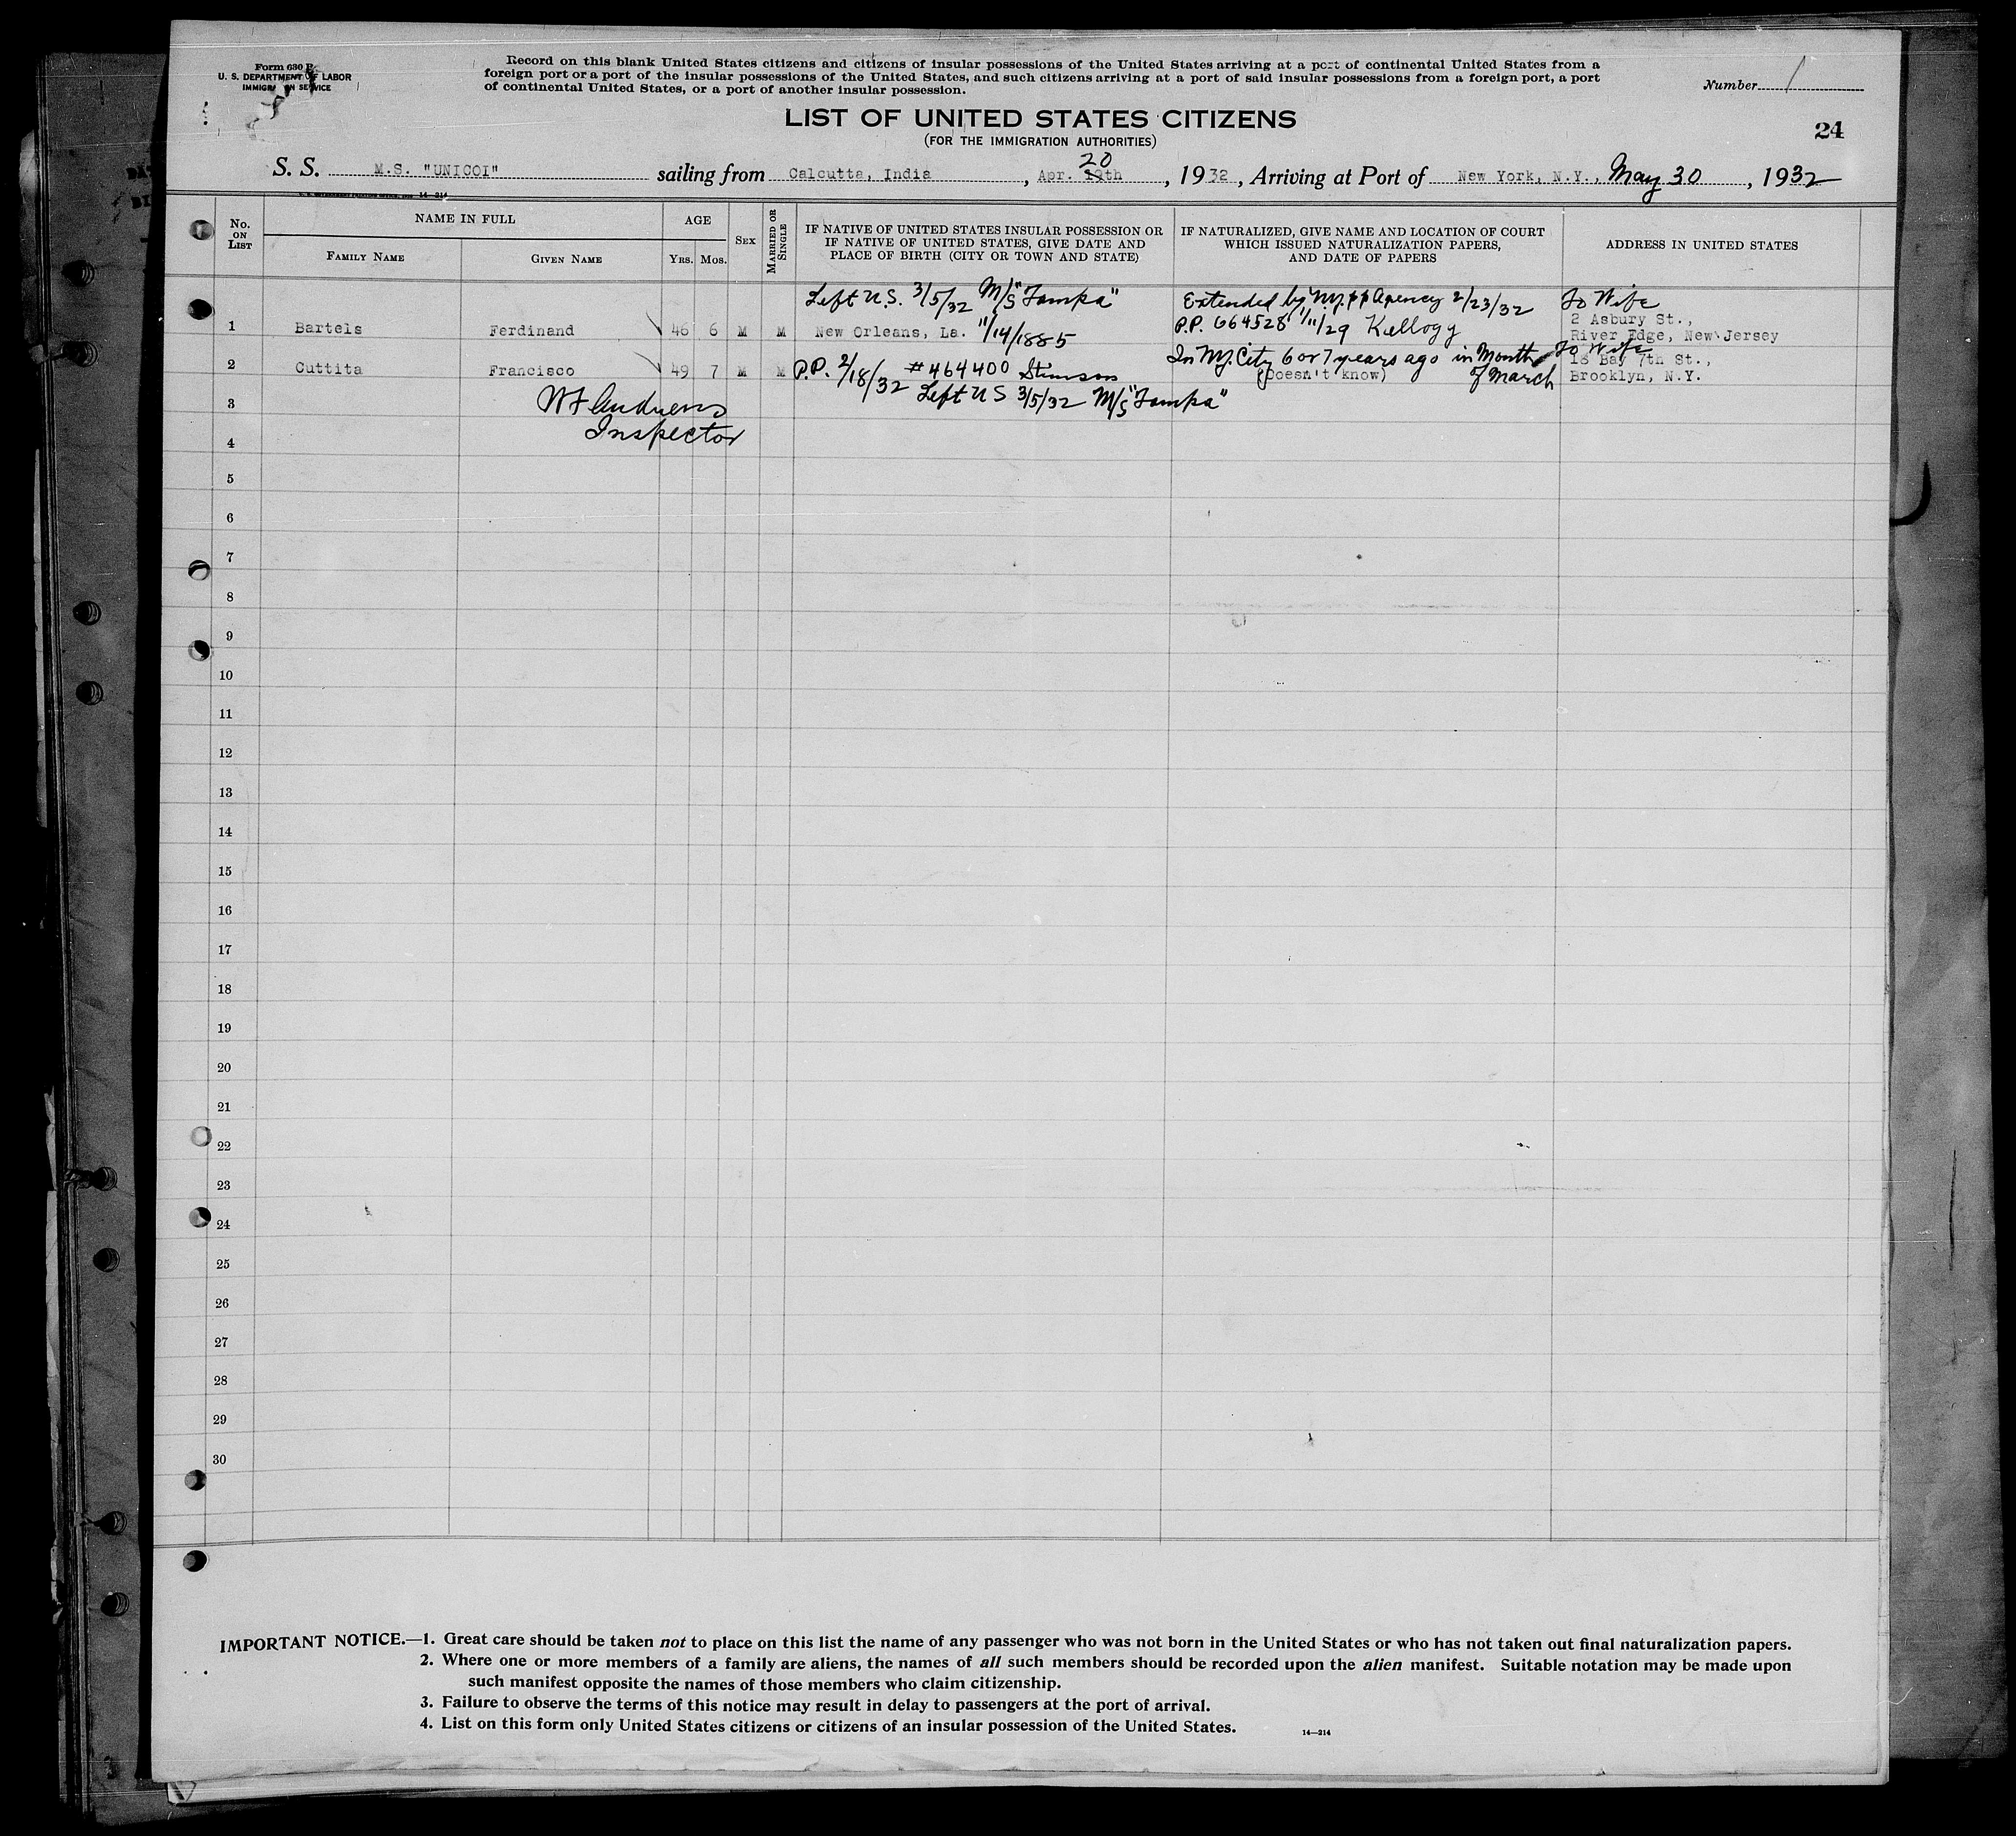 Form 630 B
U. S. DEPARTMENT OF LABOR
IMMIGRATION SERVICE
Record on this blank United States citizens and citizens of insular possessions of the United States arriving at a port of continental United States from a
foreign port or a port of the insular possessions of the United States, and such citizens arriving at a port of said insular possessions from a foreign port, a port
of continental United States, or a port of another insular possession.
Number 1
LIST OF UNITED STATES CITIZENS
(FOR THE IMMIGRATION AUTHORITIES)
24
20
S. S. M.S. "UNICOI" sailing from Calcutta, India, Apr. 19th, 1932, Arriving at Port of New York, N.Y., May 30, 1932
14—214
No. ON LIST
NAME IN FULL
FAMILY NAME
GIVEN NAME
AGE
YRS. MOS.
SEX
MARRIED OR SINGLE
IF NATIVE OF UNITED STATES INSULAR POSSESSION OR
IF NATIVE OF UNITED STATES, GIVE DATE AND
PLACE OF BIRTH (CITY OR TOWN AND STATE)
IF NATURALIZED, GIVE NAME AND LOCATION OF COURT
WHICH ISSUED NATURALIZATION PAPERS,
AND DATE OF PAPERS
ADDRESS IN UNITED STATES
Left U.S. 3/5/32 M/S "Tampa" Extended by N.Y. pp Agency 2/23/32 To Wife
1 Bartels Ferdinand 46 6 M M New Orleans, La. 11/14/1885 P.P. 664528 1/11/29 Kellogg 2 Asbury St.,
River Edge, New Jersey
In N.Y. City 6 or 7 years ago in Month of March To Wife
2 Cuttita Francisco 49 7 M M P.P. 2/18/32 #464400 Stimson (Doesn't know) 18 Bay 7th St.,
Brooklyn, N.Y.
Left US 3/5/32 M/S "Tampa"
3 W F Andrews
4 Inspector
5
6
7
8
9
10
11
12
13
14
15
16
17
18
19
20
21
22
23
24
25
26
27
28
29
30
IMPORTANT NOTICE.—1. Great care should be taken not to place on this list the name of any passenger who was not born in the United States or who has not taken out final naturalization papers.
2. Where one or more members of a family are aliens, the names of all such members should be recorded upon the alien manifest. Suitable notation may be made upon
such manifest opposite the names of those members who claim citizenship.
3. Failure to observe the terms of this notice may result in delay to passengers at the port of arrival.
4. List on this form only United States citizens or citizens of an insular possession of the United States.
14—214